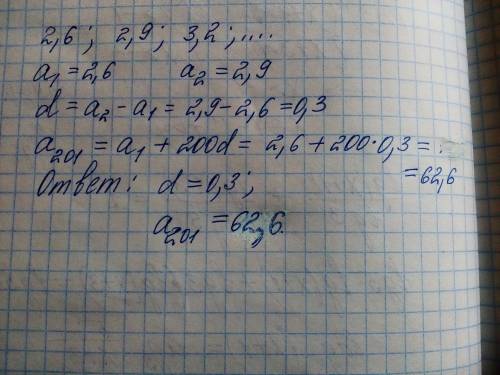 2,6; 2,9; 3,2; ....
a₁ = 2,6 a₂ = 2,9
d = a₂ - a₁ = 2,9 - 2,6 = 0,3
a₂₀₁ = a₁ + 200d = 2,6 + 200·0,3 =
= 62,6
Ответ: d = 0,3;
a₂₀₁ = 62,6.